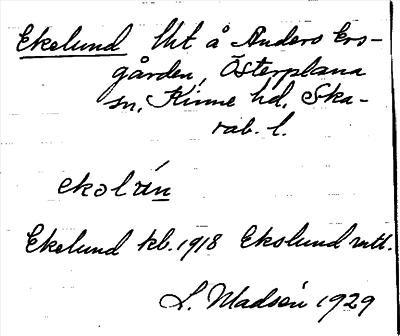 Ekelund lht å Anders Ers-
gården, Österplana
sn. Kinne hd. Ska-
rab. l.
Ekelund kb. 1918 Ekolund mtl.
L. Madsén 1929